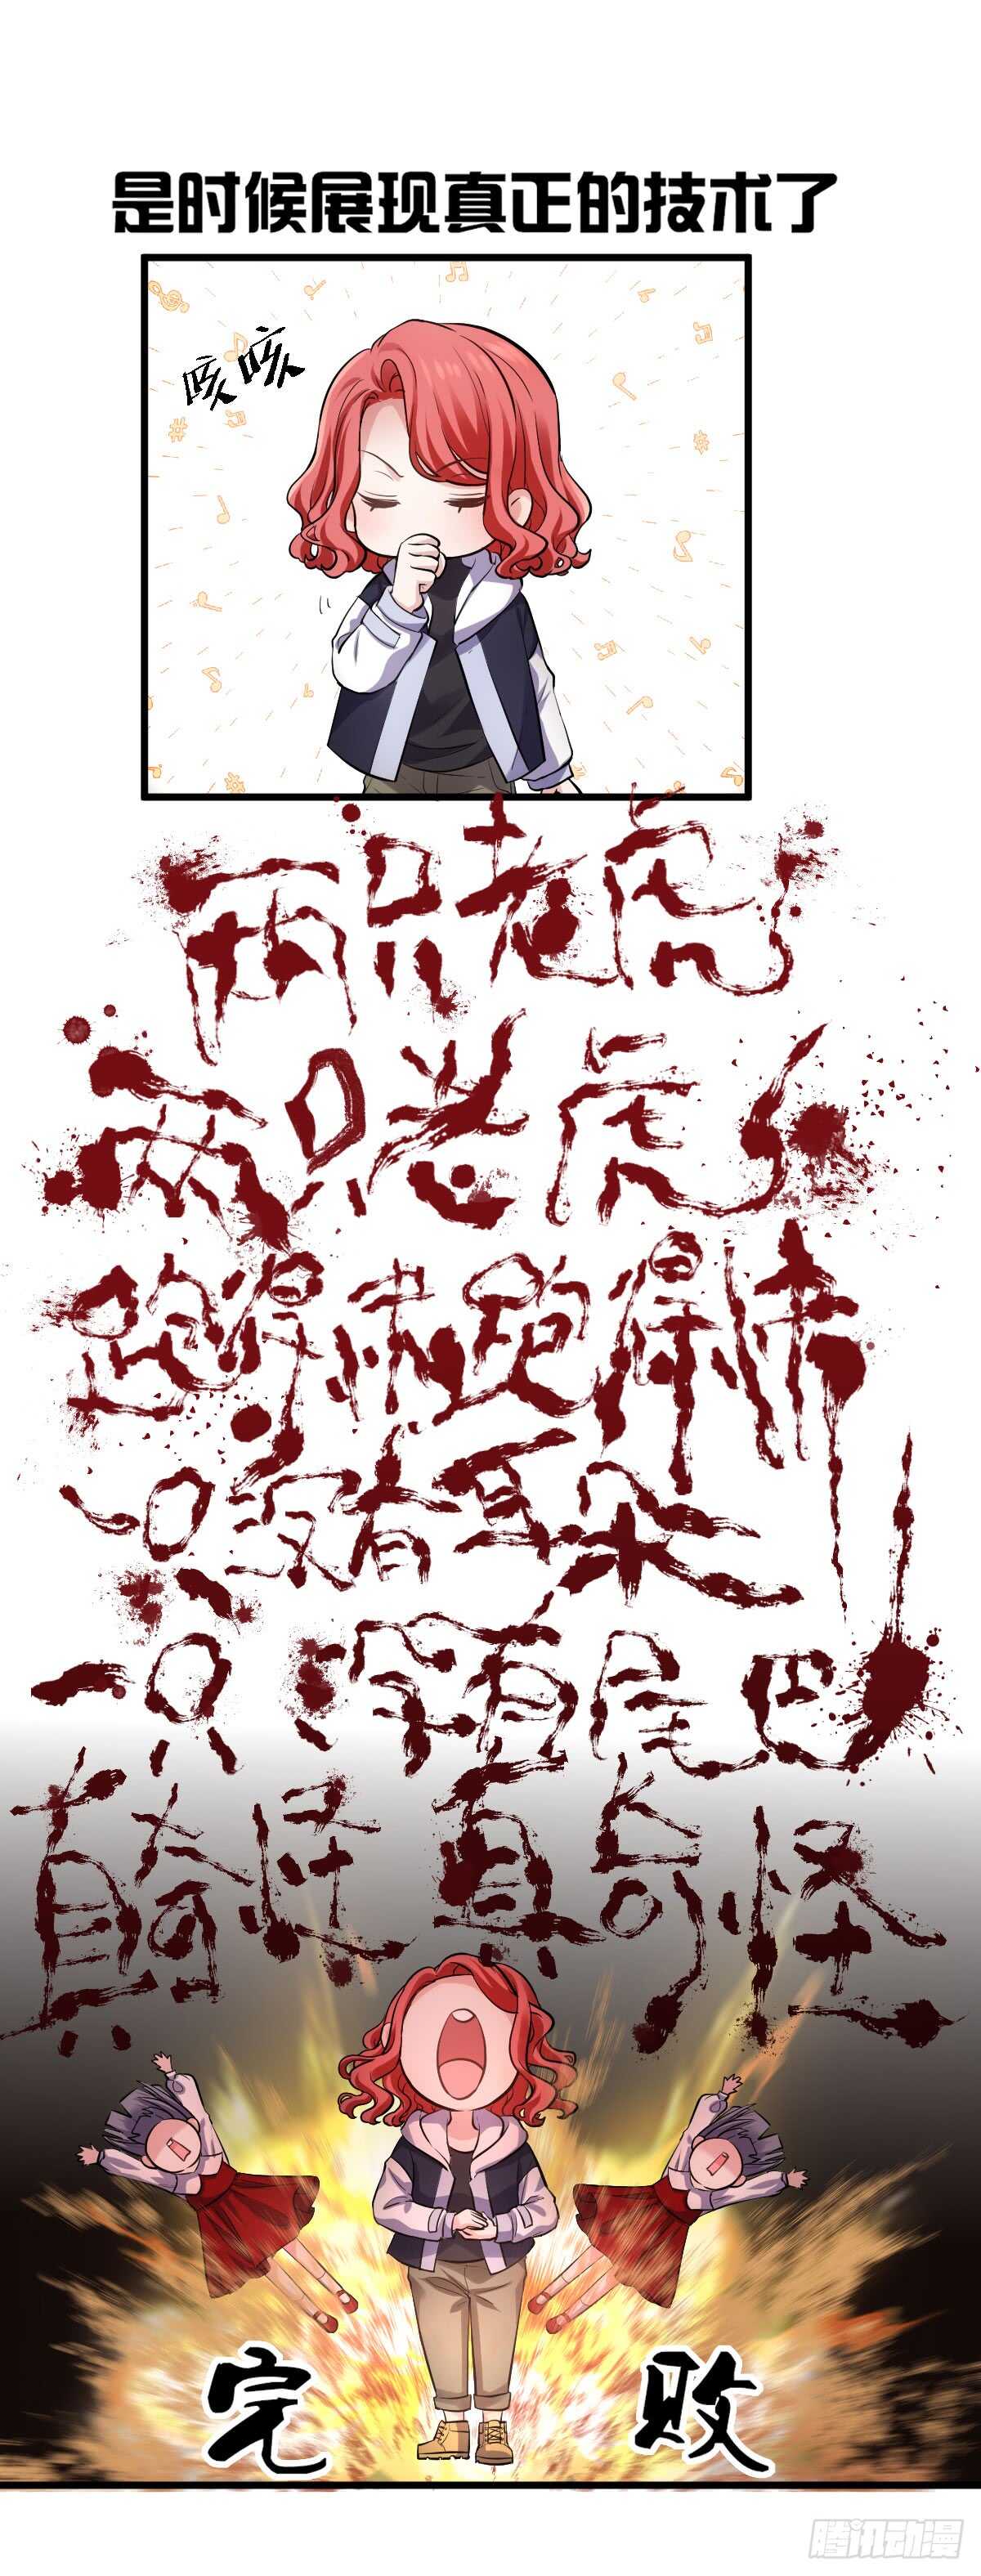 是时候展现真正的技术了
咳咳
两只老虎
两只老虎
跑得快跑得快
一只没有耳朵
一只没有尾巴
真奇怪真奇怪
完败
腾讯动漫